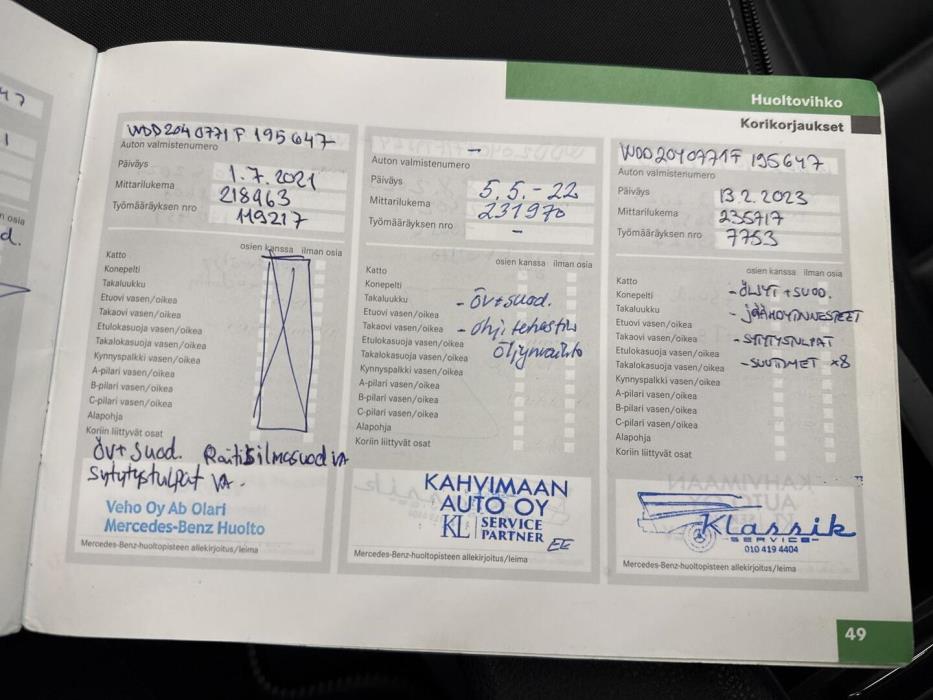 Huoltovihko
Korikorjaukset
WDD2040771F195647
Auton valmistenumero
Päiväys 1.7.2021
Mittarilukema 218963
Työmääräyksen nro 119217
osien kanssa ilman osia
Katto
Konepelti
Takaluukku
Etuovi vasen/oikea
Takaovi vasen/oikea
Etulokasuoja vasen/oikea
Takalokasuoja vasen/oikea
Kynnyspalkki vasen/oikea
A-pilari vasen/oikea
B-pilari vasen/oikea
C-pilari vasen/oikea
Alapohja
Koriin liittyvät osat
ÖV+Suod. Raitisilmasuod VA
Sytytystulpat VA.
Veho Oy Ab Olari
Mercedes-Benz Huolto
Mercedes-Benz-huoltopisteen allekirjoitus/leima
-
Auton valmistenumero
Päiväys 5.5.-22
Mittarilukema 231970
Työmääräyksen nro -
osien kanssa ilman osia
Katto
Konepelti
Takaluukku - ÖV+suod.
Etuovi vasen/oikea
Takaovi vasen/oikea
Etulokasuoja vasen/oikea öljynvaihto
Takalokasuoja vasen/oikea
Kynnyspalkki vasen/oikea
A-pilari vasen/oikea
B-pilari vasen/oikea
C-pilari vasen/oikea
Alapohja
Koriin liittyvät osat
KAHVIMAAN
AUTO OY
KL SERVICE
PARTNER EE
Mercedes-Benz-huoltopisteen allekirjoitus/leima
WDD2040771F195647
Auton valmistenumero
Päiväys 13.2.2023
Mittarilukema 235717
Työmääräyksen nro 7753
osien kanssa ilman osia
Katto
Konepelti - ÖLJYT + SUOD.
Takaluukku - JÄÄHDYTINNESTEET
Etuovi vasen/oikea
Takaovi vasen/oikea - SYTYTYSTULPAT
Etulokasuoja vasen/oikea
Takalokasuoja vasen/oikea - SUUTTIMET x8
Kynnyspalkki vasen/oikea
A-pilari vasen/oikea
B-pilari vasen/oikea
C-pilari vasen/oikea
Alapohja
Koriin liittyvät osat
Klassik
SERVICE
010 419 4404
Mercedes-Benz-huoltopisteen allekirjoitus/leima
49